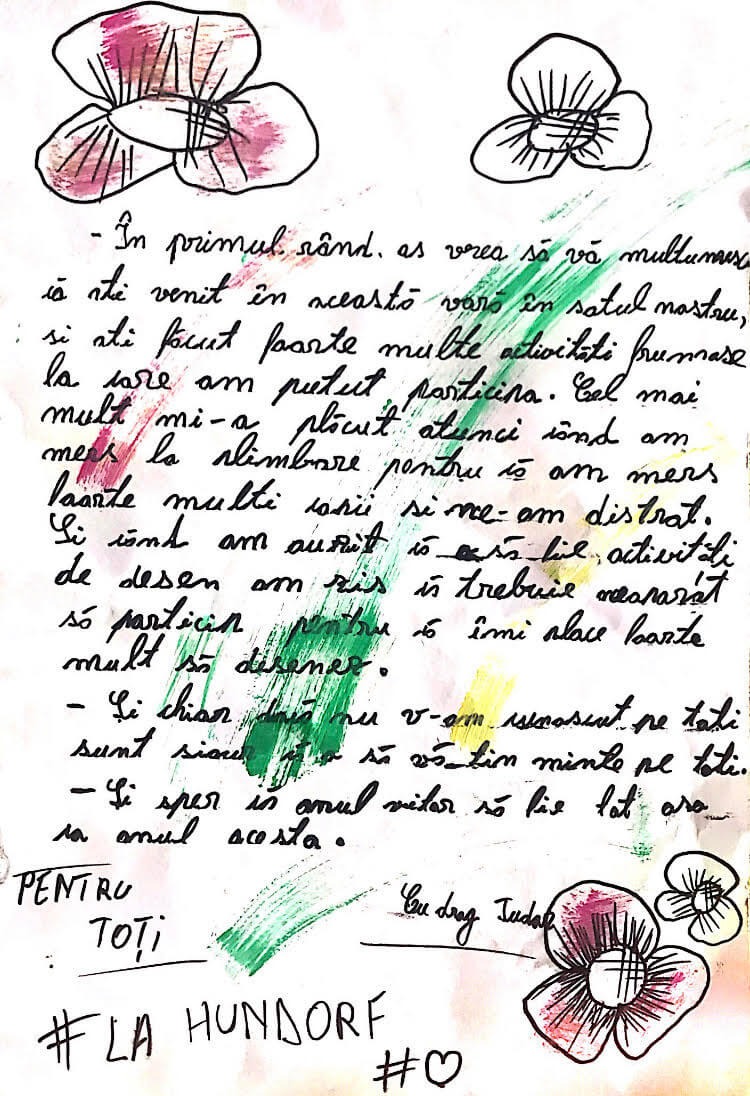 - În primul rând. as vrea să vă multumesc
că ati venit în această vară în satul nostru,
si ati făcut foarte multe activităti frumoase
la care am putut participa. Cel mai
mult mi-a plăcut atunci când am
mers la plimbare pentru că am mers
foarte multi copii si ne-am distrat.
Si când am auzit că o să fie activităti
de desen am zis că trebuie neaparat
să particip pentru că îmi place foarte
mult să desenez.
- Si chiar dacă nu v-am cunoscut pe toti
sunt sigur că o să vă tin minte pe toti.
- Si sper că anul viitor să fie tot asa
ca anul acesta.
PENTRU
TOȚI
Cu drag
# LA HUNDORF
#♡